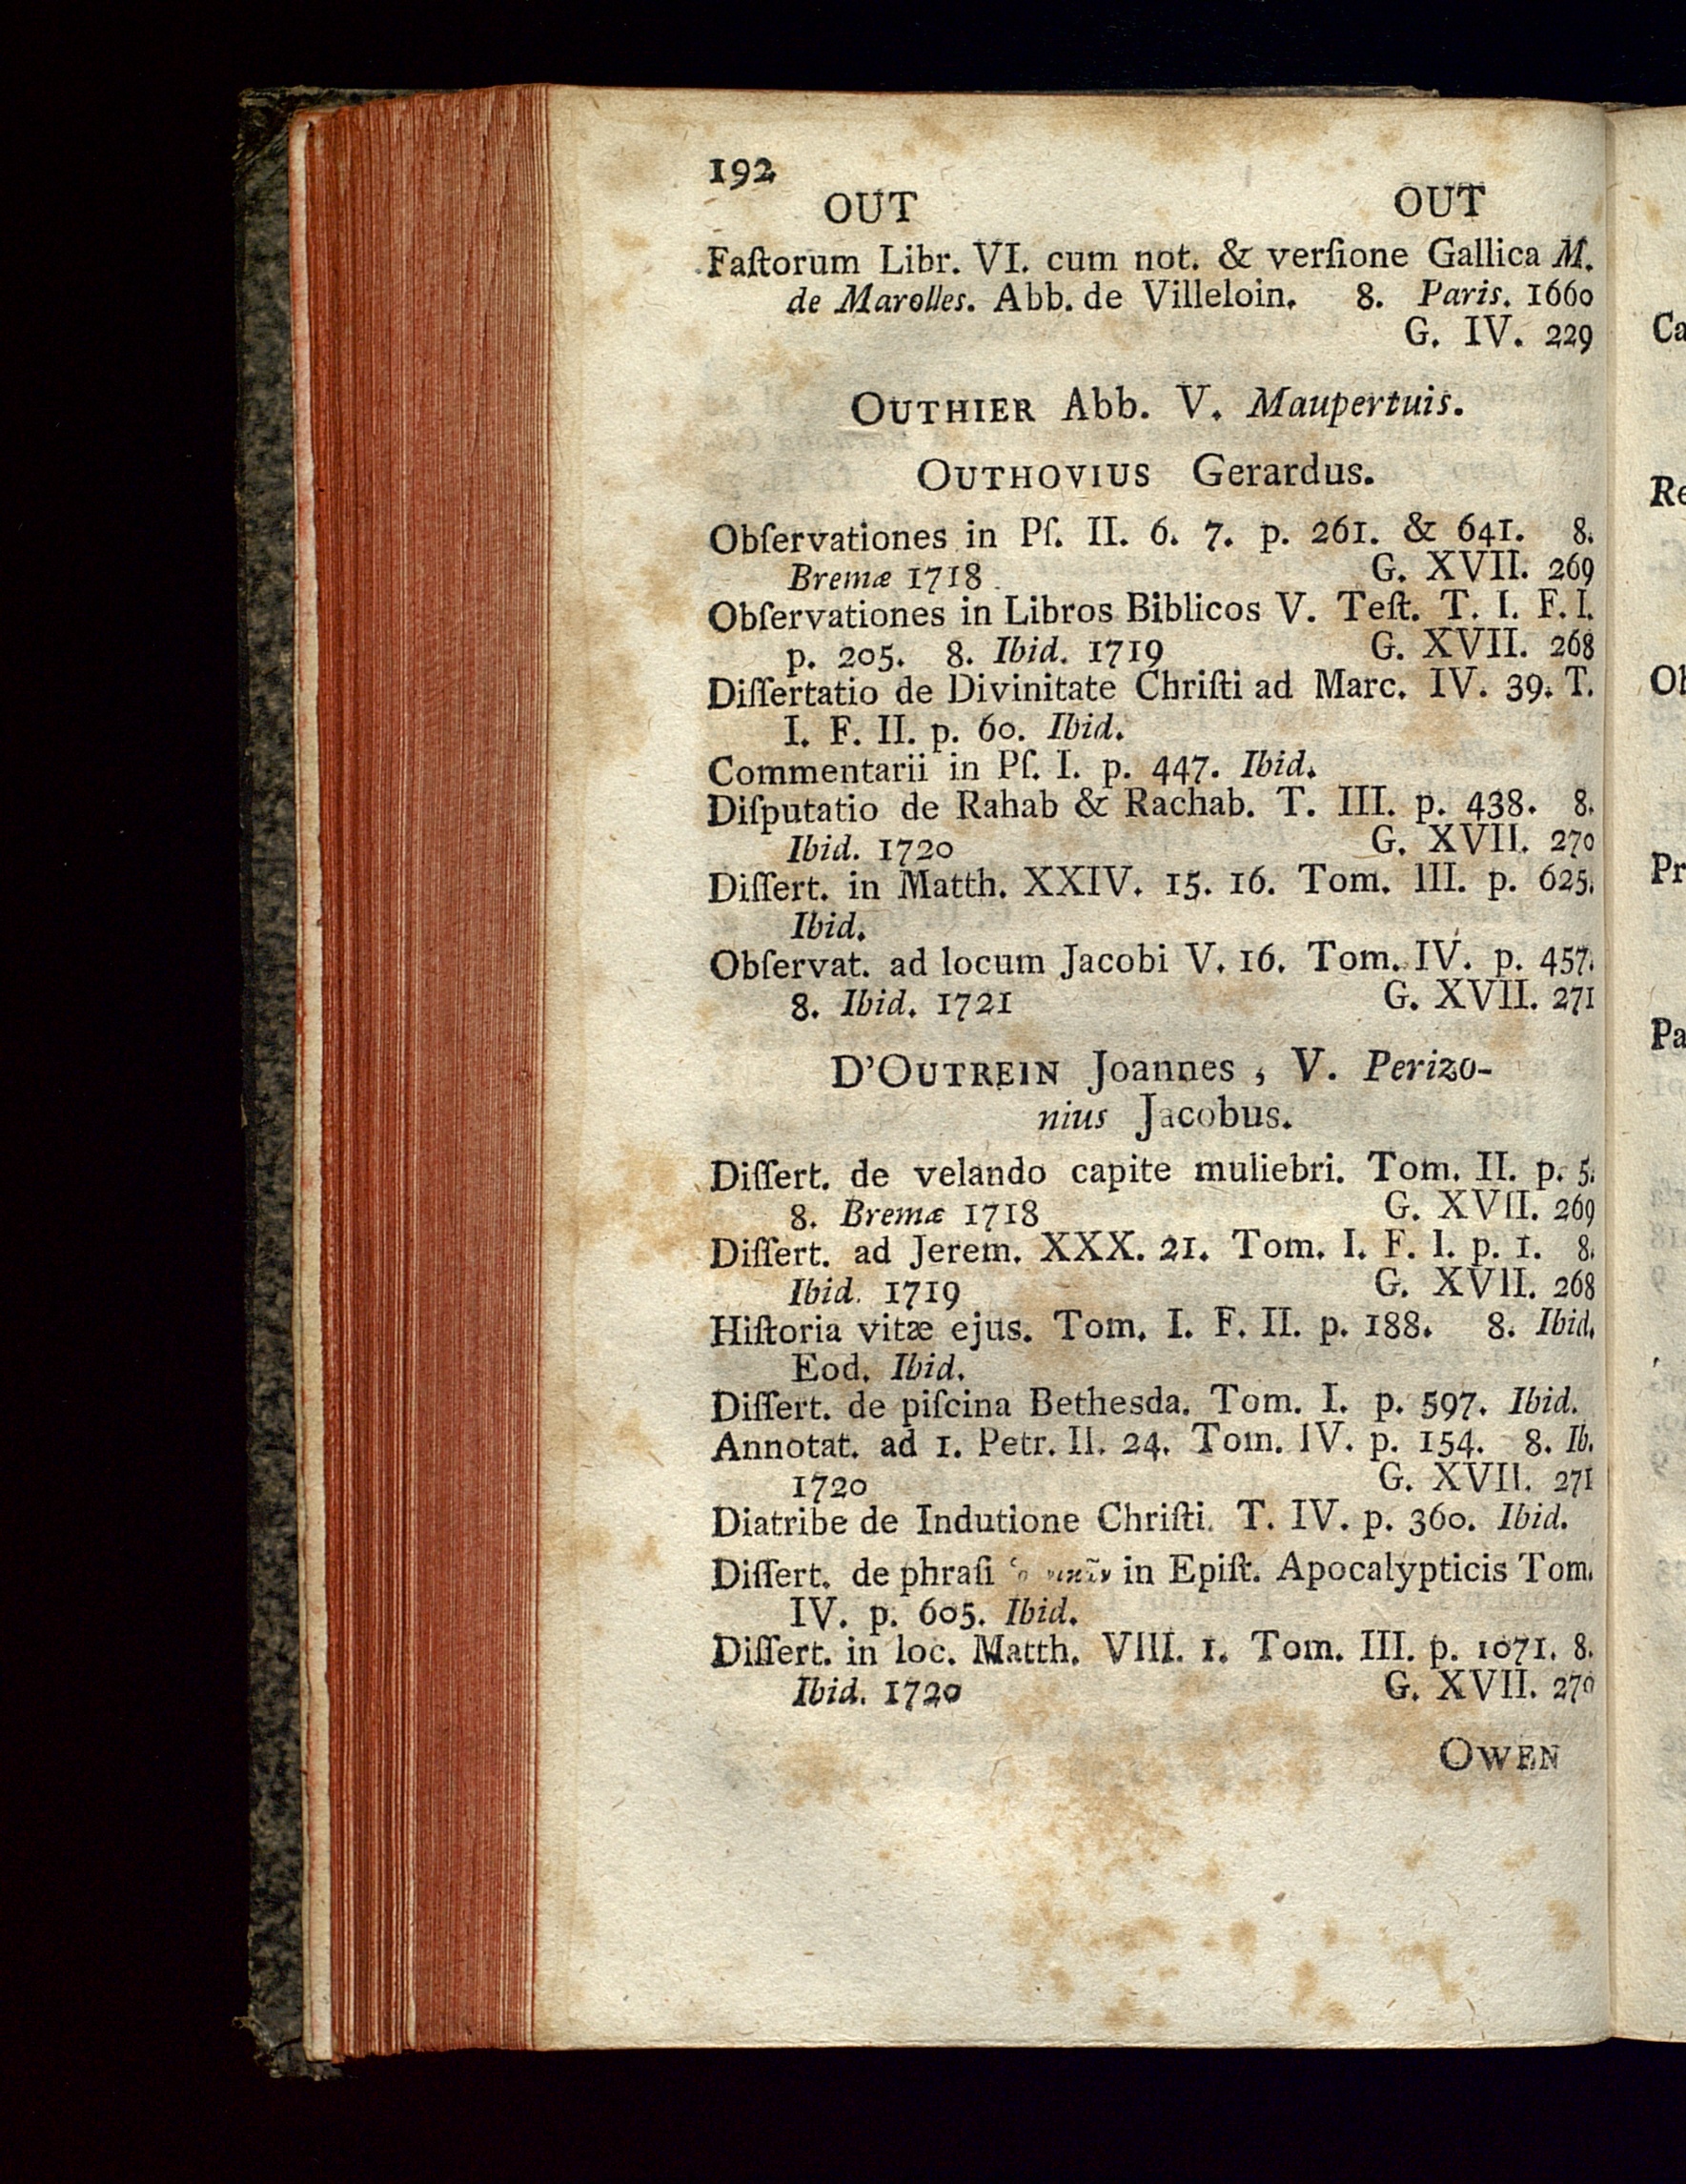 192
OUT OUT
Faſtorum Libr. VI. cum not. & verſione Gallica M.
de Marolles. Abb. de Villeloin. 8. Paris. 1660
G. IV. 229
OUTHIER Abb. V. Maupertuis.
OUTHOVIUS Gerardus.
Obſervationes in Pſ. II. 6. 7. p. 261. & 641. 8.
Bremæ 1718 G. XVII. 269
Obſervationes in Libros Biblicos V. Teſt. T. I. F. I.
p. 205. 8. Ibid. 1719 G. XVII. 268
Diſſertatio de Divinitate Chriſti ad Marc. IV. 39. T.
I. F. II. p. 60. Ibid.
Commentarii in Pſ. I. p. 447. Ibid.
Diſputatio de Rahab & Rachab. T. III. p. 438. 8.
Ibid. 1720 G. XVII. 270
Diſſert. in Matth. XXIV. 15. 16. Tom. III. p. 625.
Ibid.
Obſervat. ad locum Jacobi V. 16. Tom. IV. p. 457.
8. Ibid. 1721 G. XVII. 271
D'OUTREIN Joannes, V. Perizo-
nius Jacobus.
Diſſert. de velando capite muliebri. Tom. II. p. 5.
8. Bremæ 1718 G. XVII. 269
Diſſert. ad Jerem. XXX. 21. Tom. I. F. I. p. 1. 8.
Ibid. 1719 G. XVII. 268
Hiſtoria vitæ ejus. Tom. I. F. II. p. 188. 8. Ibid.
Eod. Ibid.
Diſſert. de piſcina Bethesda. Tom. I. p. 597. Ibid.
Annotat. ad 1. Petr. II. 24. Tom. IV. p. 154. 8. Ib.
1720 G. XVII. 271
Diatribe de Indutione Chriſti. T. IV. p. 360. Ibid.
Diſſert. de phraſi in Epiſt. Apocalypticis Tom.
IV. p. 605. Ibid.
Diſſert. in loc. Matth. VIII. 1. Tom. III. p. 1071. 8.
Ibid. 1720 G. XVII. 270
OWEN
Ca
Re
Pr
Pa